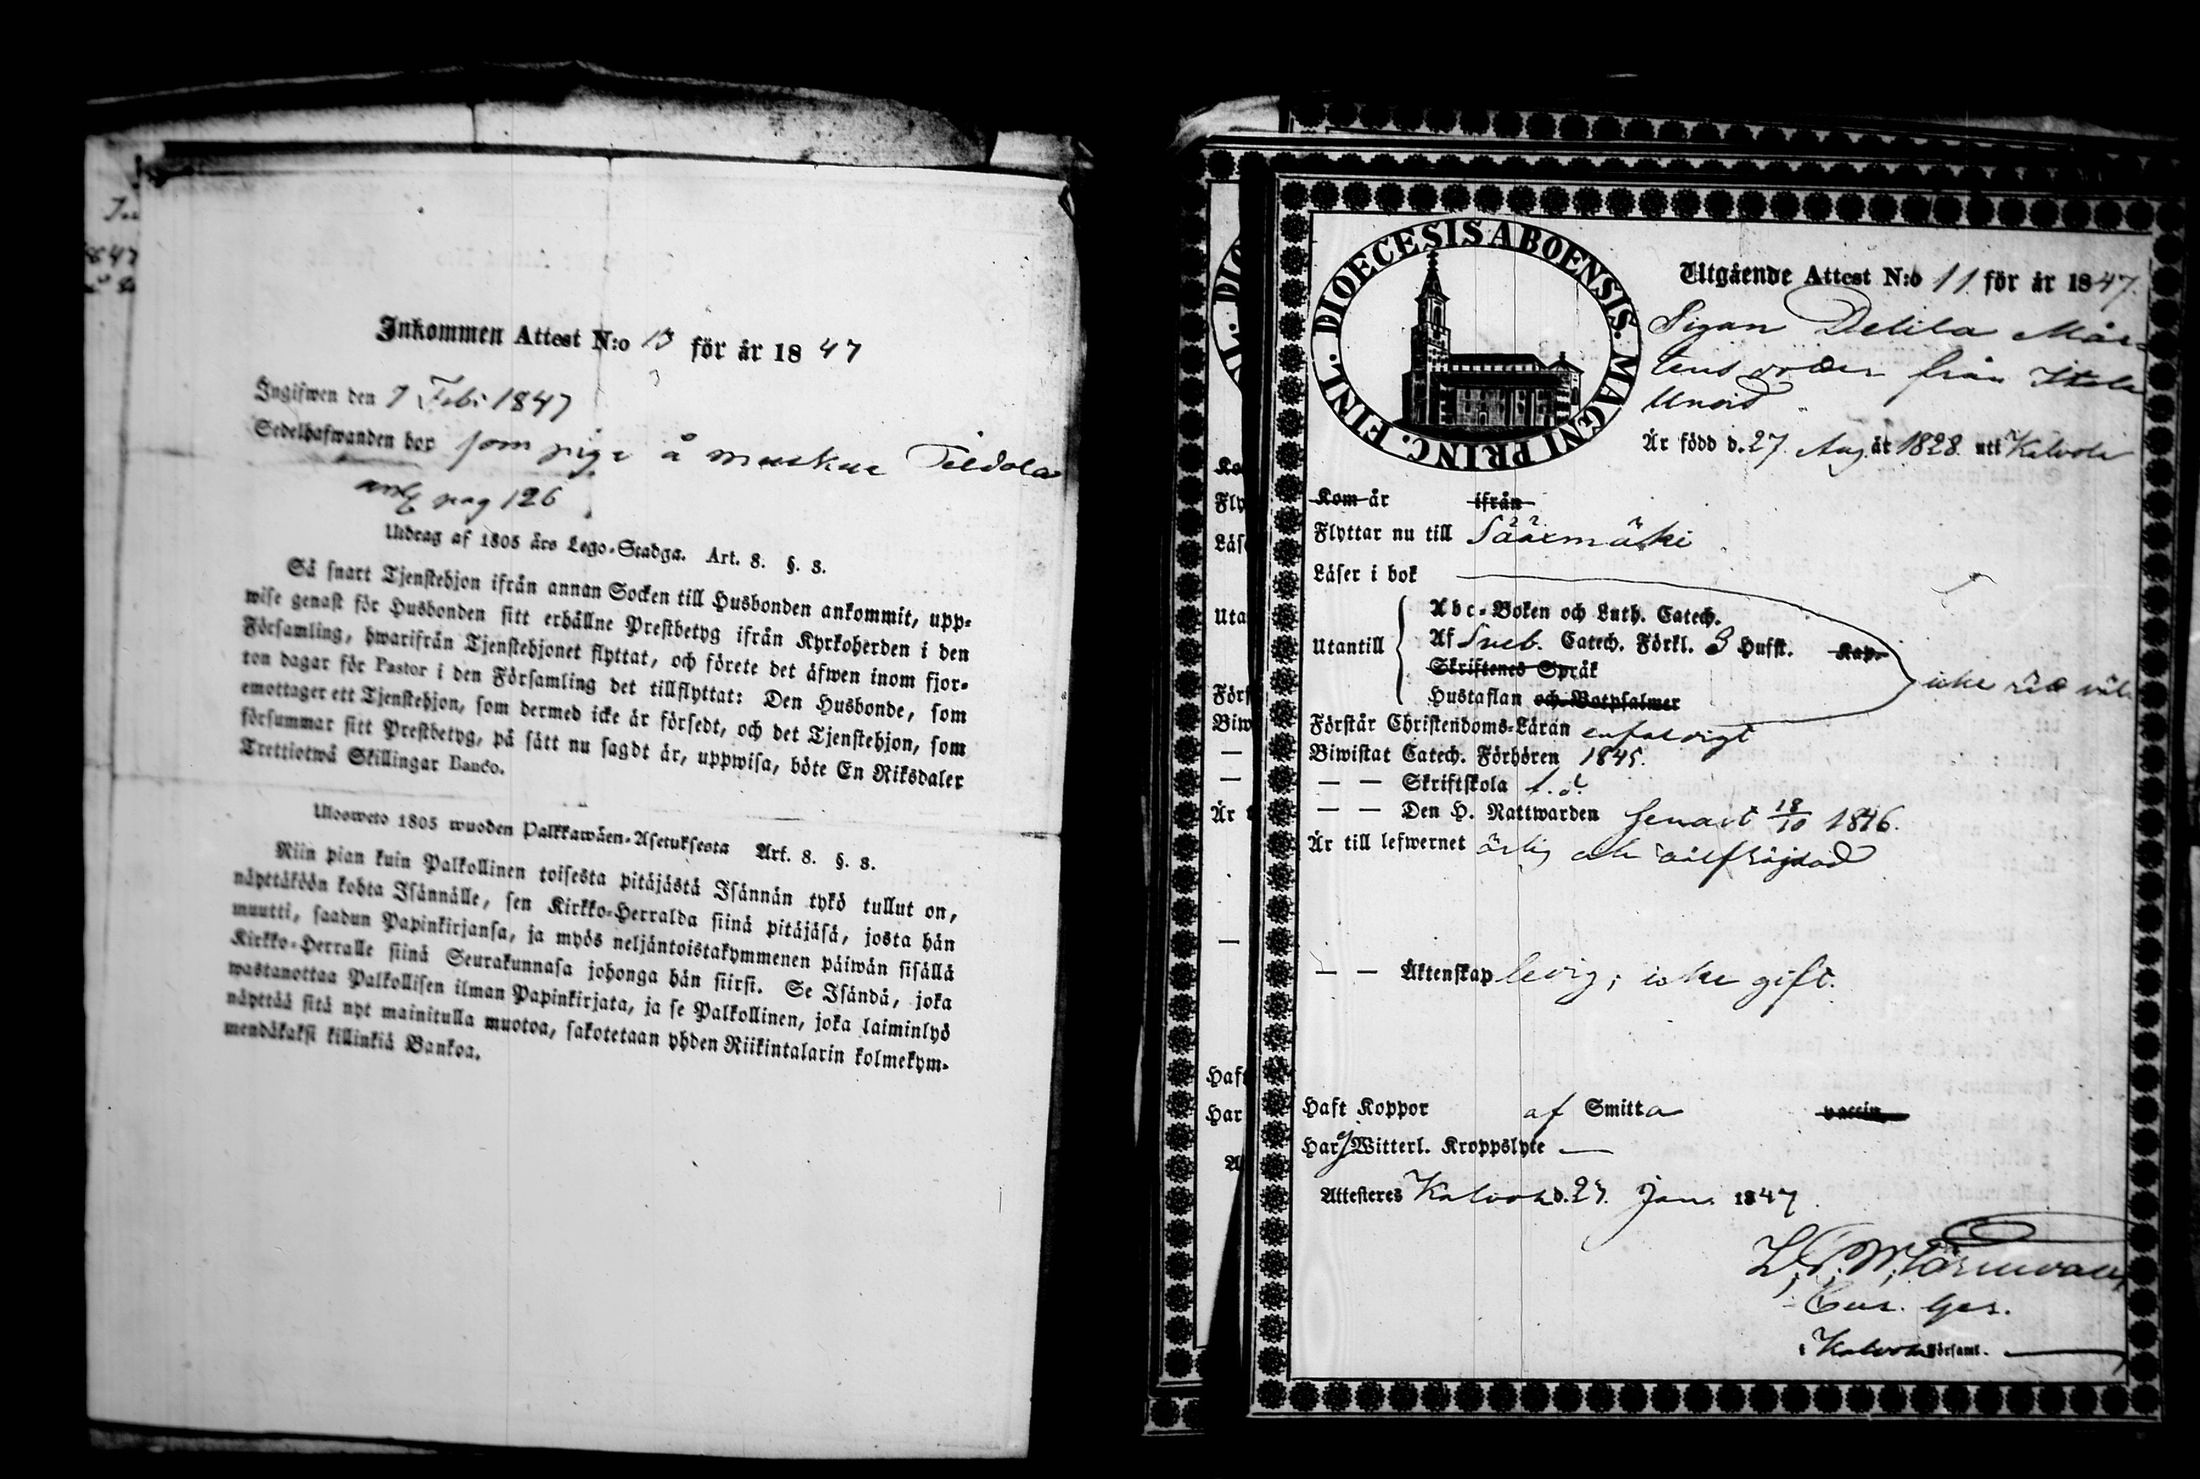 Inkommen Attest N:o 13 för år 1847
Ingifwen den 7 Feb: 1847
Sedelhafwanden bor som piga å
pag 126
Utdrag af 1805 års Lego-Stadga. Art. 8. §. 3.
Så snart Tjenstehjon ifrån annan Socken till Husbonden ankommit, upp-
wise genast för Husbonden sitt erhållne Prestbetyg ifrån Kyrkoherden i den
Församling, hwarifrån Tjenstehjonet flyttat, och förete det äfwen inom fjor-
ton dagar för Pastor i den Församling det tillflyttat: Den Husbonde, som
emottager ett Tjenstehjon, som dermed icke är försedt, och det Tjenstehjon, som
försummar sitt Prestbetyg, på sätt nu sagdt är, uppwisa, böte En Riksdaler
Trettiotwå Skillingar Banco.
Ulosweto 1805 wuoden Palkkawäen-Asetuksesta Art. 8. §. 3.
Niin pian kuin Palkollinen toisesta pitäjästä Isännän tykö tullut on,
näyttäköön kohta Isännälle, sen Kirkko-Herralda siinä pitäjäsä, josta hän
muutti, saadun Papinkirjansa, ja myös neljäntoistakymmenen päiwän sisällä
Kirkko-Herralle siinä Seurakunnasa johonga hän siirsi. Se Isändä, joka
wastanottaa Palkollisen ilman Papinkirjata, ja se Palkollinen, joka laiminlyö
näyttää sitä nyt mainitulla muotoa, sakotetaan yhden Riikintalarin kolmekym-
mendäkaksi killinkiä Bankoa.
DIOECESIS ABOENSIS. MAGNI PRINC. FINL.
Utgående Attest N:o 11 för år 1847.
Pigan Delila Mår-
tens dotter från
Är född d. 27 Aug. år 1828 uti Kalvola
Kom år ifrån
Flyttar nu till Sääxmäki
Läser i bok
Utantill
Abc-Boken och Luth. Catech.
Af Sveb. Catech. Förkl. 3 Hufst. Kap.
Skriftenes Språk
Hustaflan och Botpsalmer
icke rätt väl
Förstår Christendoms-Läran enfaldigt
Biwistat Catech. Förhören 1845.
— — Skriftskola
— — Den H. Nattwarden senast 18/10 1846.
Är till lefwernet ärlig och välfräjdad
— — Äktenskap ledig; icke gift.
Haft Koppor af Smitta vaccin.
Har ej Witterl. Kroppslyte —
Attesteres Kalvola d. 27. Jan. 1847.
i Kalvola Församl.